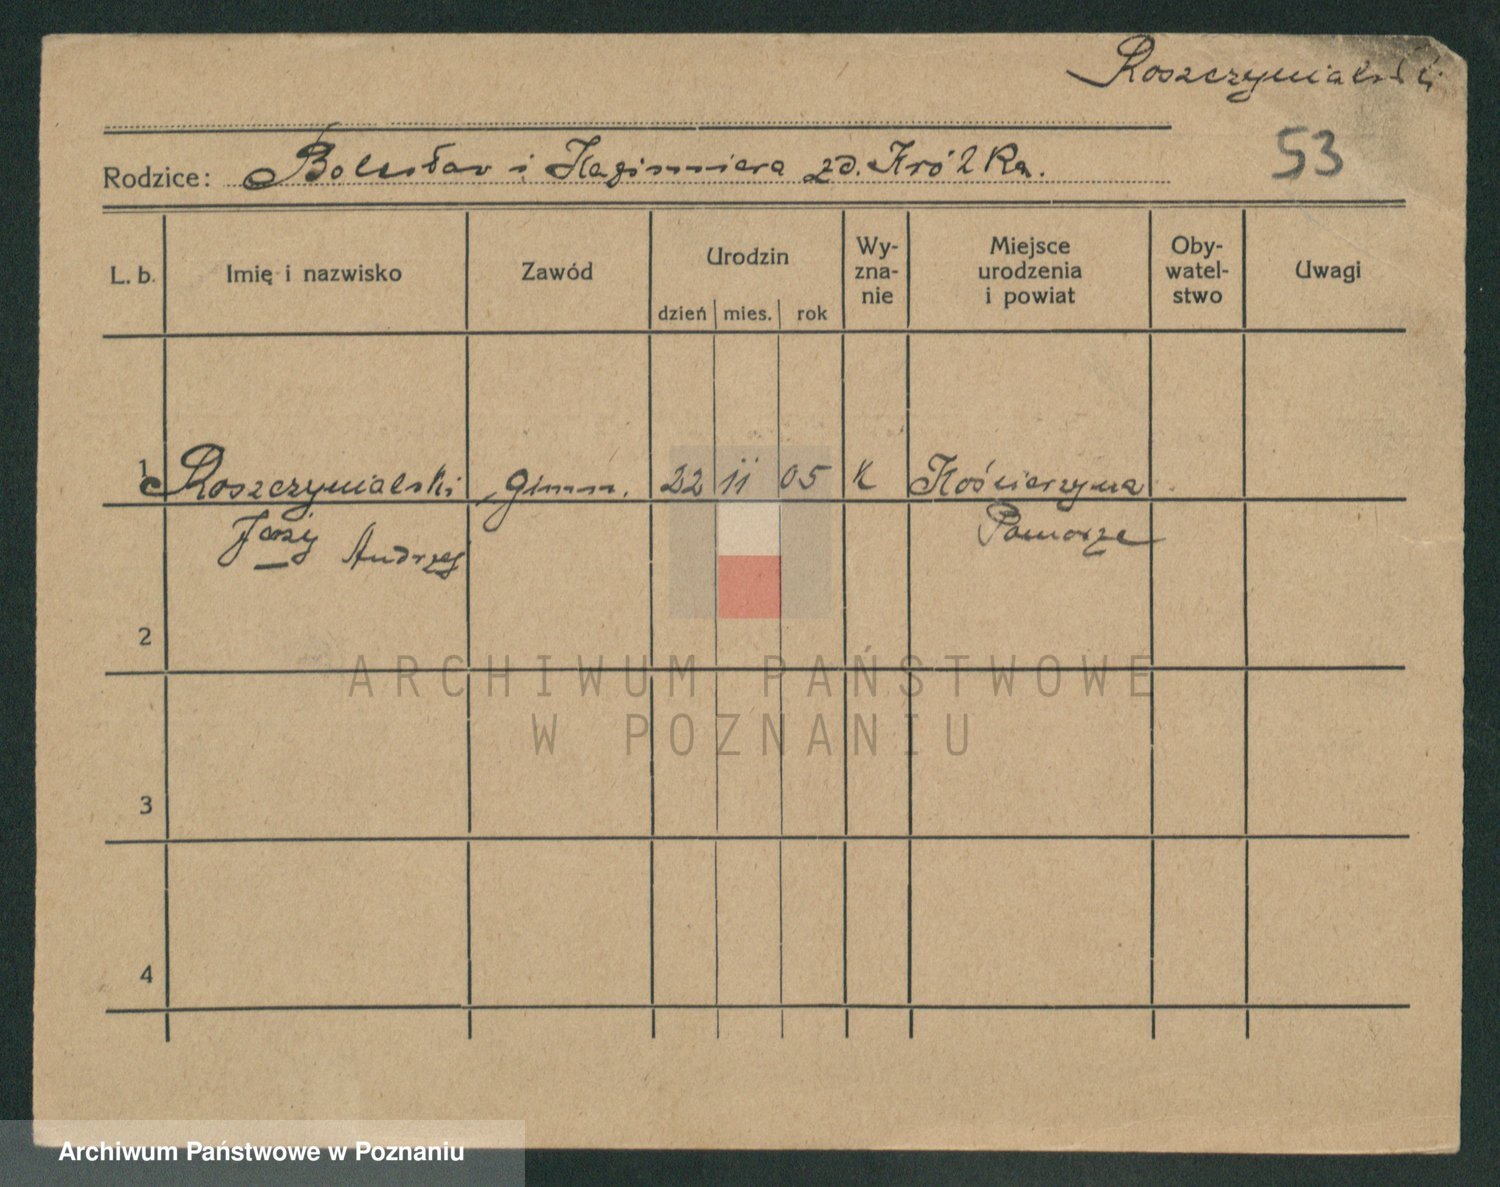 Roszczynialski
53
Rodzice: Bolesław i Kazimiera zd. Królka.
L. b. Imię i nazwisko Zawód Urodzin dzień mies. rok Wy-zna-nie Miejsce urodzenia i powiat Oby-watel-stwo Uwagi
1 Roszczynialski gimn. 22 11 05 K Kościerzyna
Jerzy Andrzej Pomorze
2
ARCHIWUM PAŃSTWOWE
W POZNANIU
3
4
Archiwum Państwowe w Poznaniu